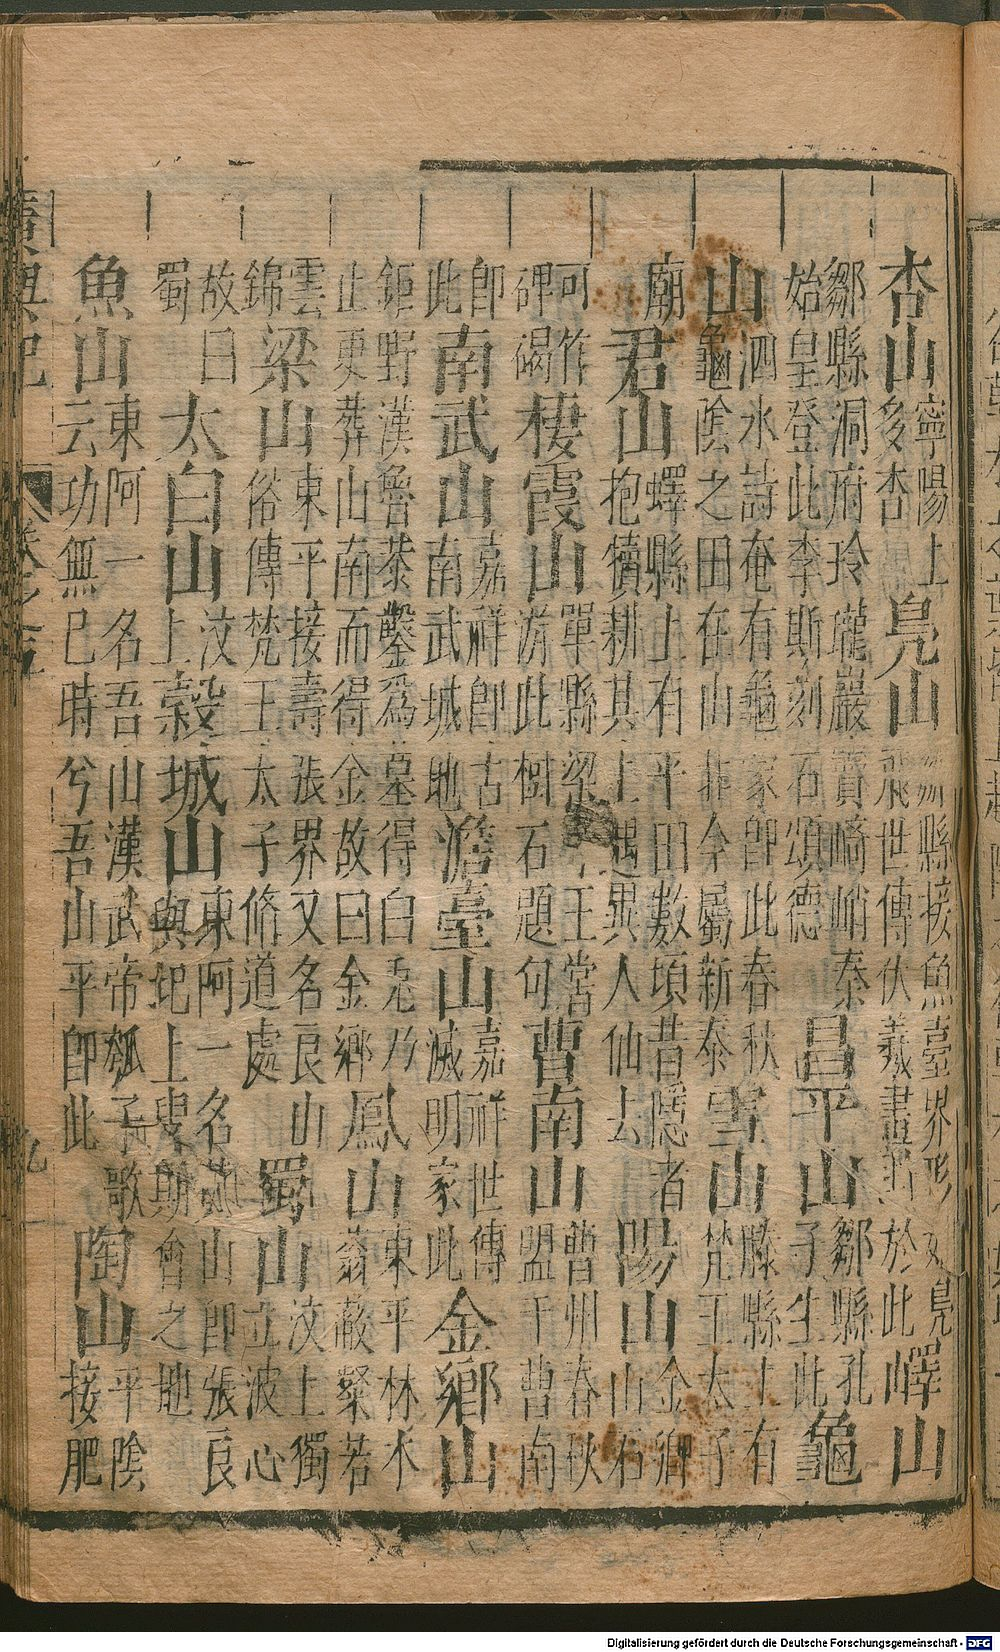 杏山寧陽上多杏鳧山鄒縣接魚臺界形如鳧飛世傳伏羲畫卦於此嶧山
鄒縣洞府玲瓏巖竇崎峭秦始皇登此李斯刻石頌德昌平山鄒縣孔子生此龜
山泗水詩奄有龜蒙即此春秋龜陰之田在山北今屬新泰雪山滕縣上有梵王太子
廟君山嶧縣上有平田數頃昔隱者抱犢耕其上遇異人仙去陽山金鄉山石
可作碑碣棲霞山單縣梁王嘗游此樹石題句曹南山曹州春秋盟于曹南
即此南武山嘉祥即古南武城地澹臺山嘉祥世傳滅明家此金鄉山
鉅野漢魯恭鑿爲墓得白兎乃止更葬山南而得金故曰金鄉鳳山東平林木蓊蔽粲若
雲錦梁山東平接壽張界又名良山俗傳梵王太子脩道處蜀山汶上獨立波心
故曰蜀太白山汶上穀城山東阿一名黄山即張良與圯上叟期會之地
魚山東阿一名吾山漢武帝瓠子歌云功無已時兮吾山平即此陶山平陰接肥
廣輿記
卷之五
九
Digitalisierung gefördert durch die Deutsche Forschungsgemeinschaft - DFG